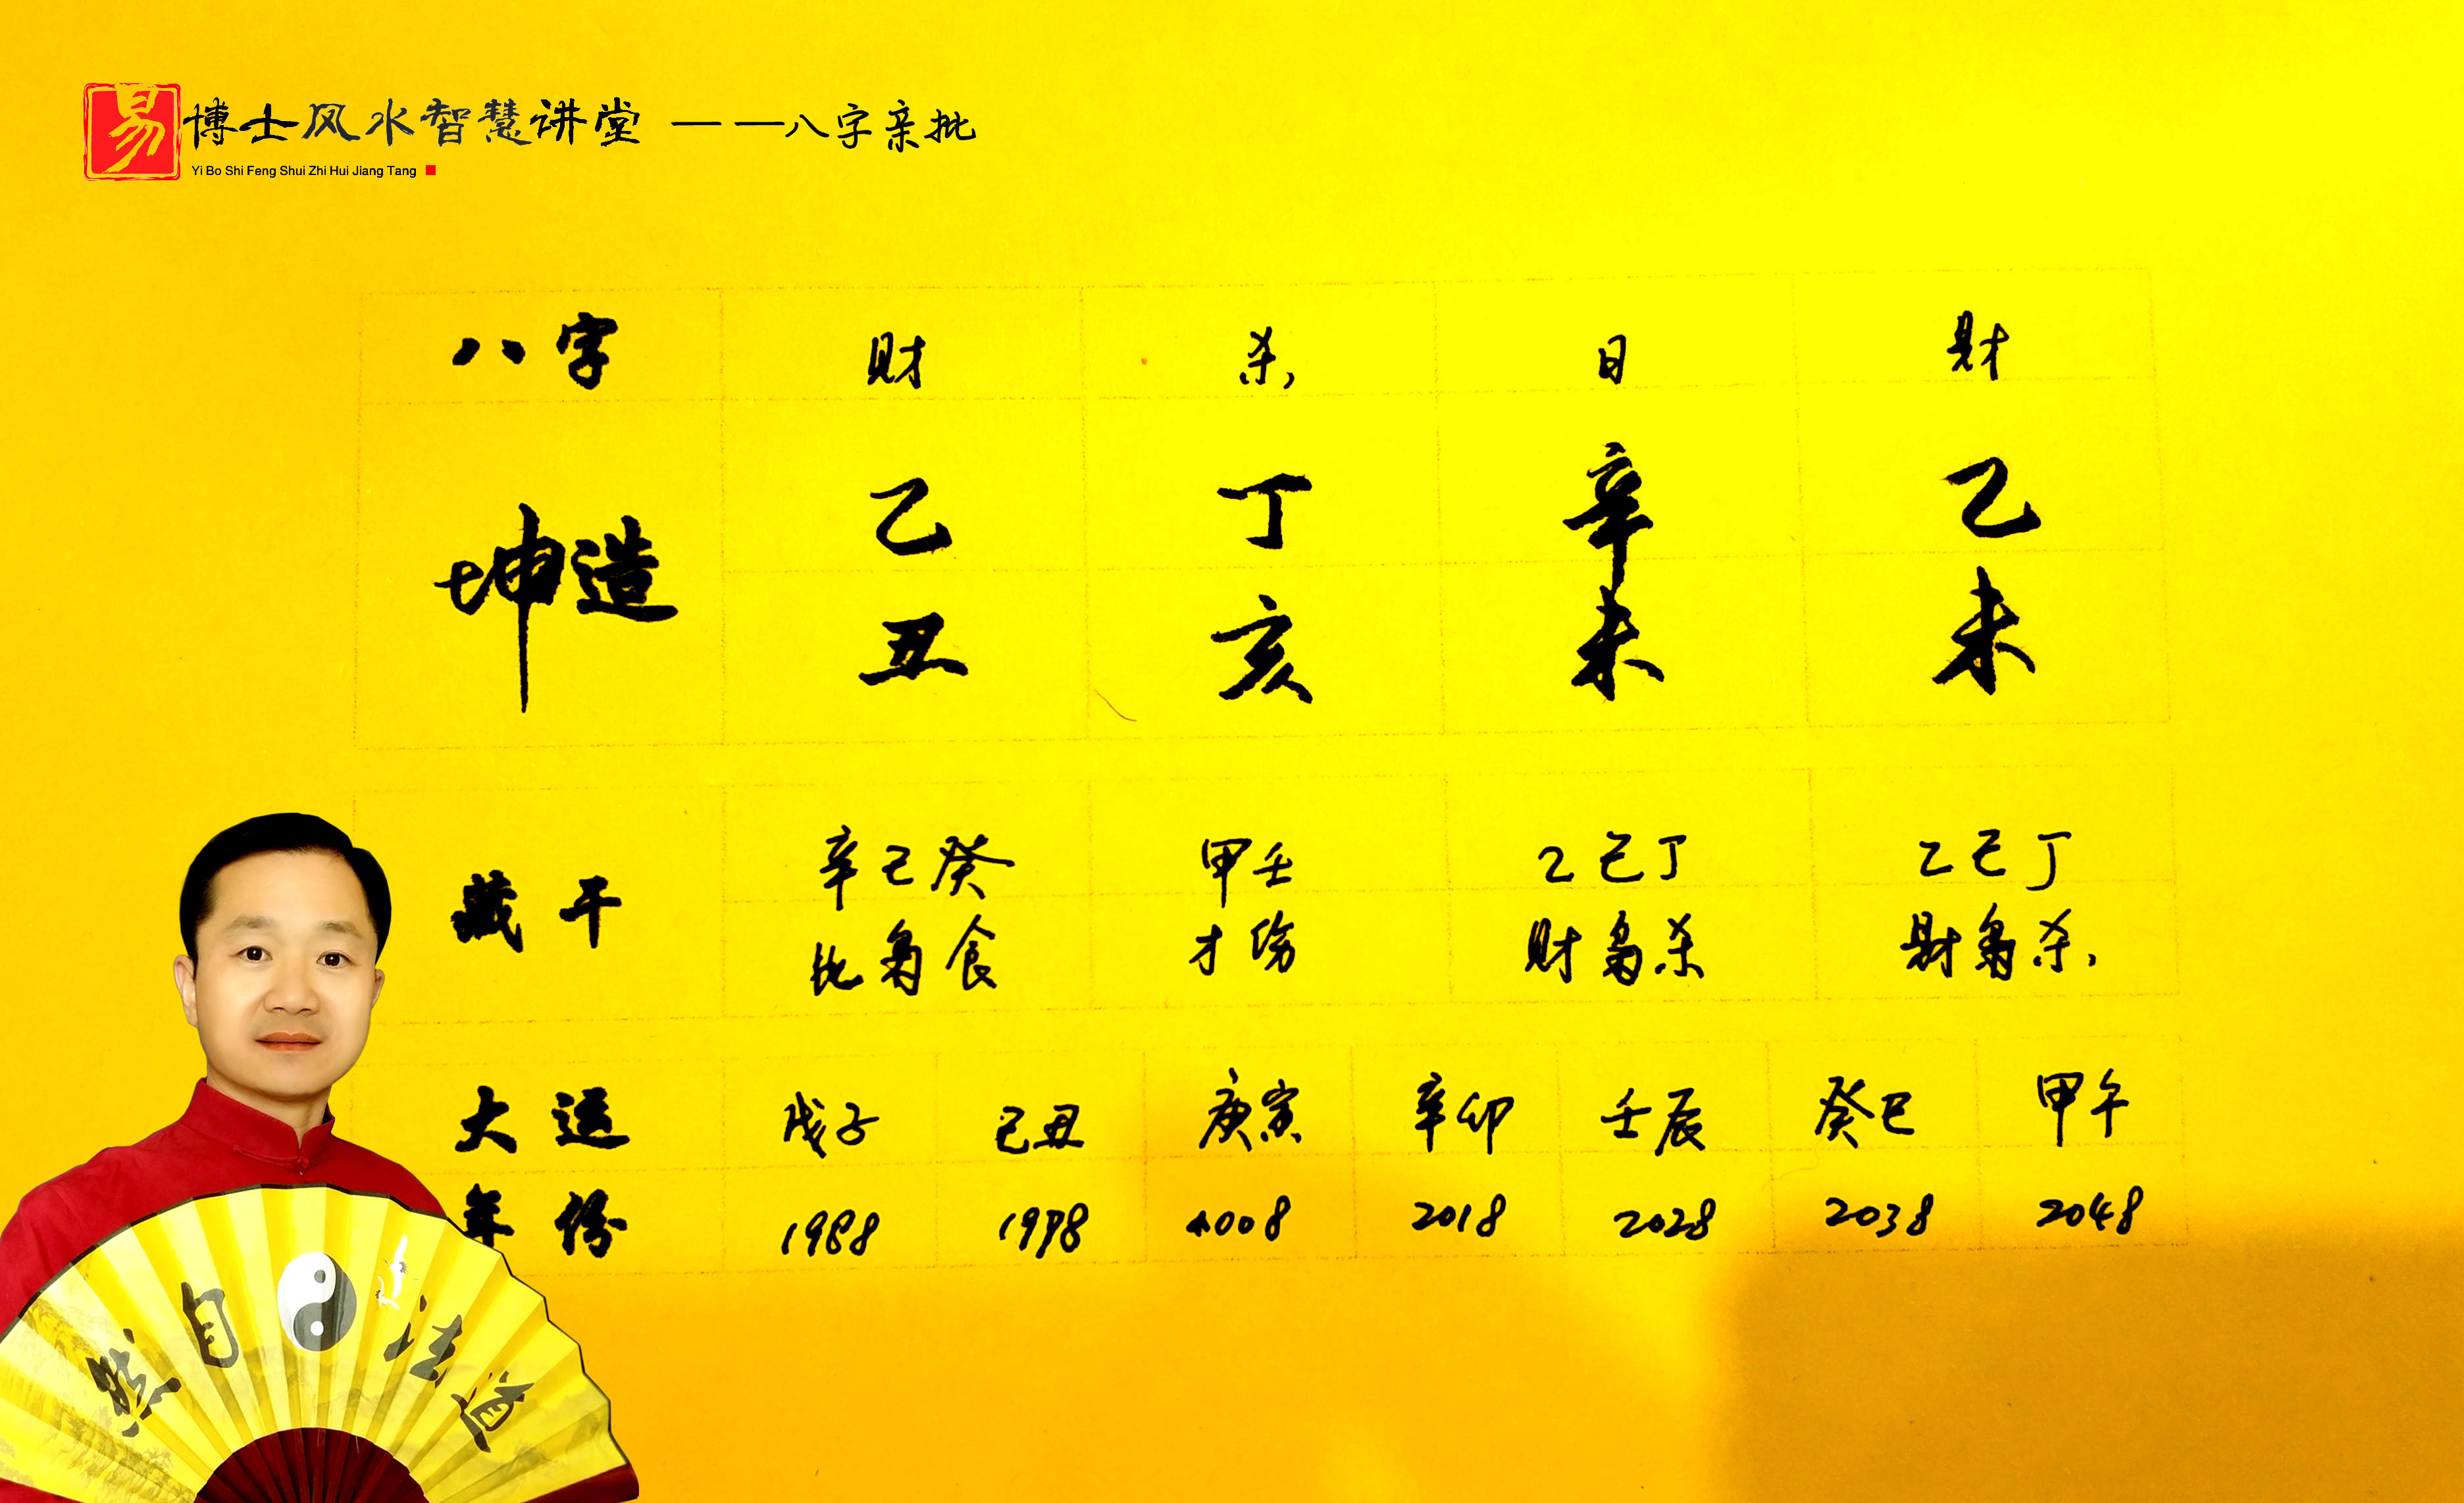 易博士风水智慧讲堂 ——八字亲批
Yi Bo Shi Feng Shui Zhi Hui Jiang Tang
八字 财 杀 日 财
坤造 乙 丁 辛 乙
丑 亥 未 未
藏干 辛己癸 甲壬 乙己丁 乙己丁
比枭食 才伤 财枭杀 财枭杀
大运 戊子 己丑 庚寅 辛卯 壬辰 癸巳 甲午
年份 1988 1998 2008 2018 2028 2038 2048
然自法道